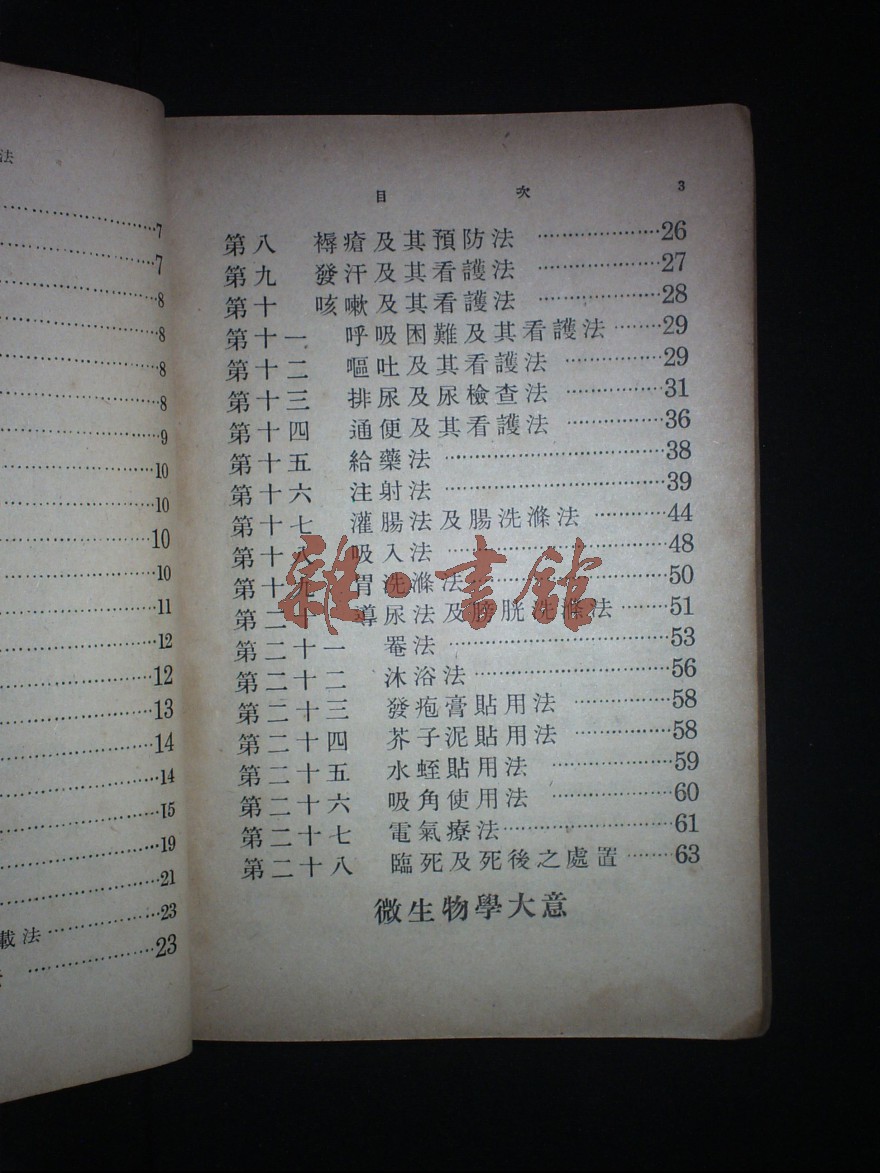 法
7
7
8
8
8
8
9
10
10
10
10
11
12
12
13
14
14
15
19
21
載法……23
……23
目 次 3
第八 褥瘡及其預防法 ……26
第九 發汗及其看護法 ……27
第十 咳嗽及其看護法 ……28
第十一 呼吸困難及其看護法 ……29
第十二 嘔吐及其看護法 ……29
第十三 排尿及尿檢查法 ……31
第十四 通便及其看護法 ……36
第十五 給藥法 ……38
第十六 注射法 ……39
第十七 灌腸法及腸洗滌法 ……44
第十八 吸入法 ……48
第十九 胃洗滌法 ……50
第二十 導尿法及膀胱洗滌法 ……51
第二十一 罨法 ……53
第二十二 沐浴法 ……56
第二十三 發疱膏貼用法 ……58
第二十四 芥子泥貼用法 ……58
第二十五 水蛭貼用法 ……59
第二十六 吸角使用法 ……60
第二十七 電氣療法 ……61
第二十八 臨死及死後之處置 ……63
微生物學大意
雜·書館